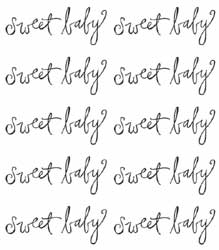 sweet baby sweet baby
sweet baby sweet baby
sweet baby sweet baby
sweet baby sweet baby
sweet baby sweet baby